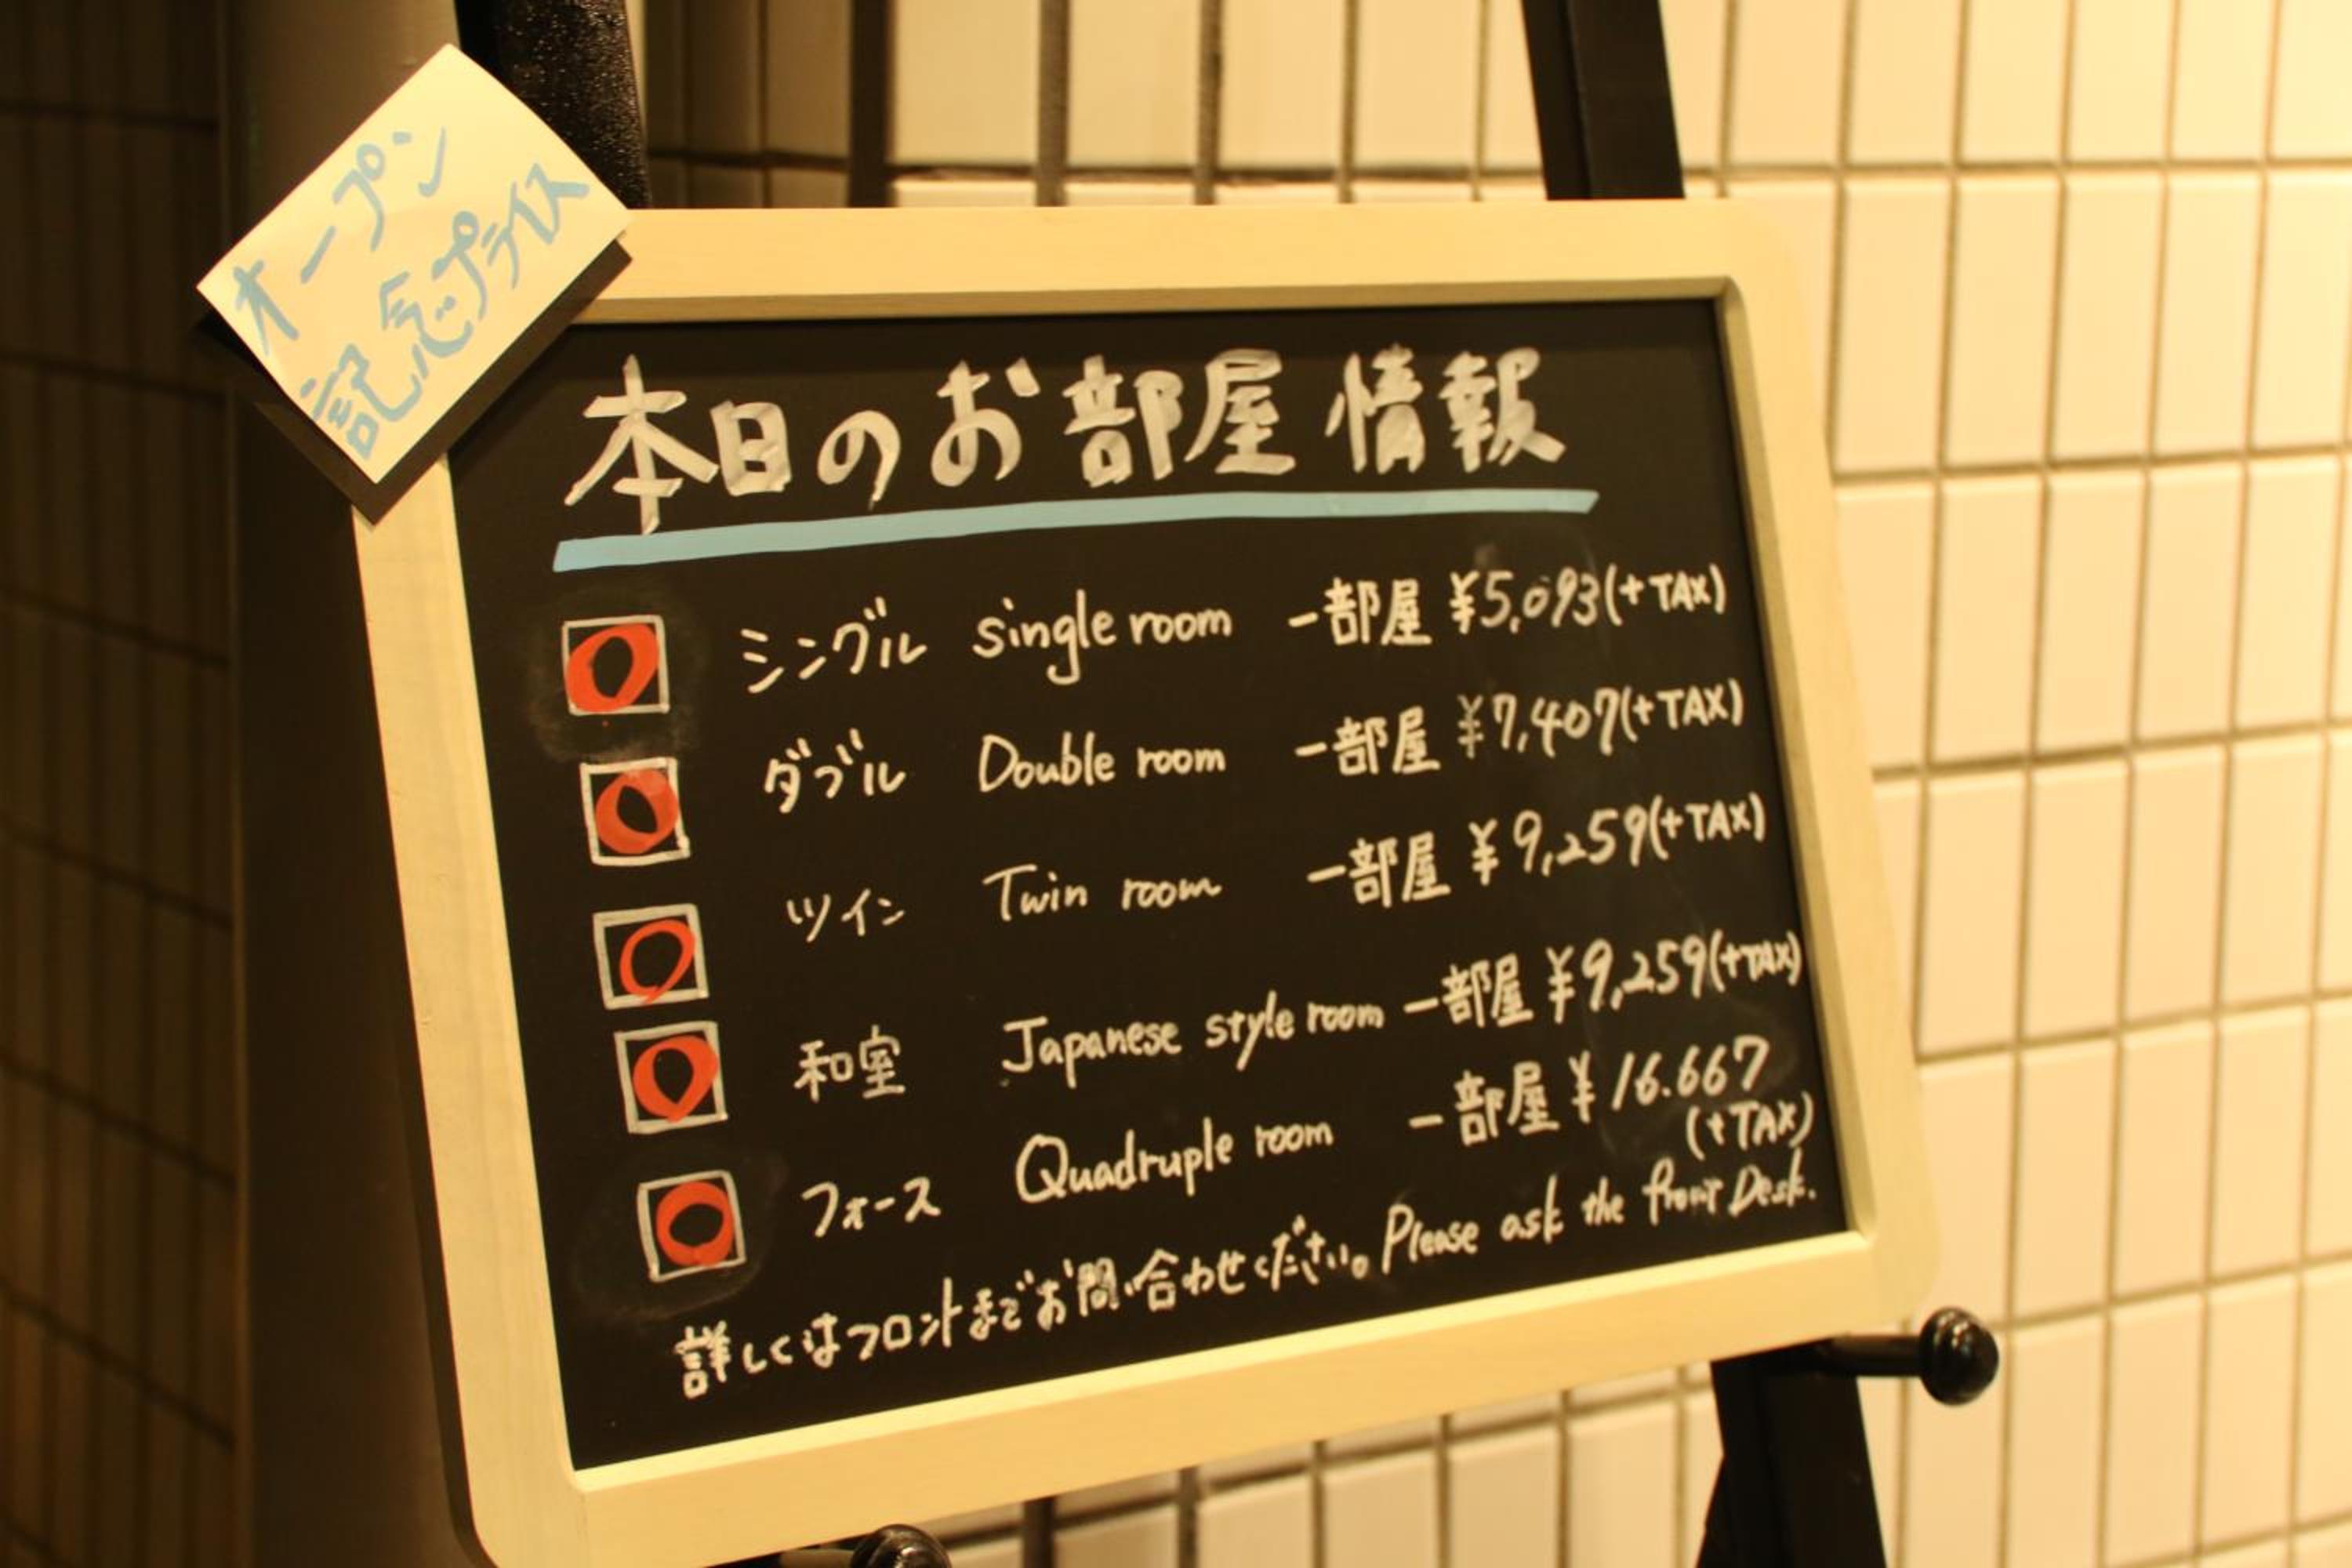 オープン
記念プライス
本日のお部屋情報
シングル single room 一部屋 ¥5,093(+TAX)
ダブル Double room 一部屋 ¥7,407(+TAX)
ツイン Twin room 一部屋 ¥9,259(+TAX)
和室 Japanese style room 一部屋 ¥9,259(+TAX)
フォース Quadruple room 一部屋 ¥16.667
(+TAX)
詳しくはフロントまでお問い合わせください。Please ask the front Desk.